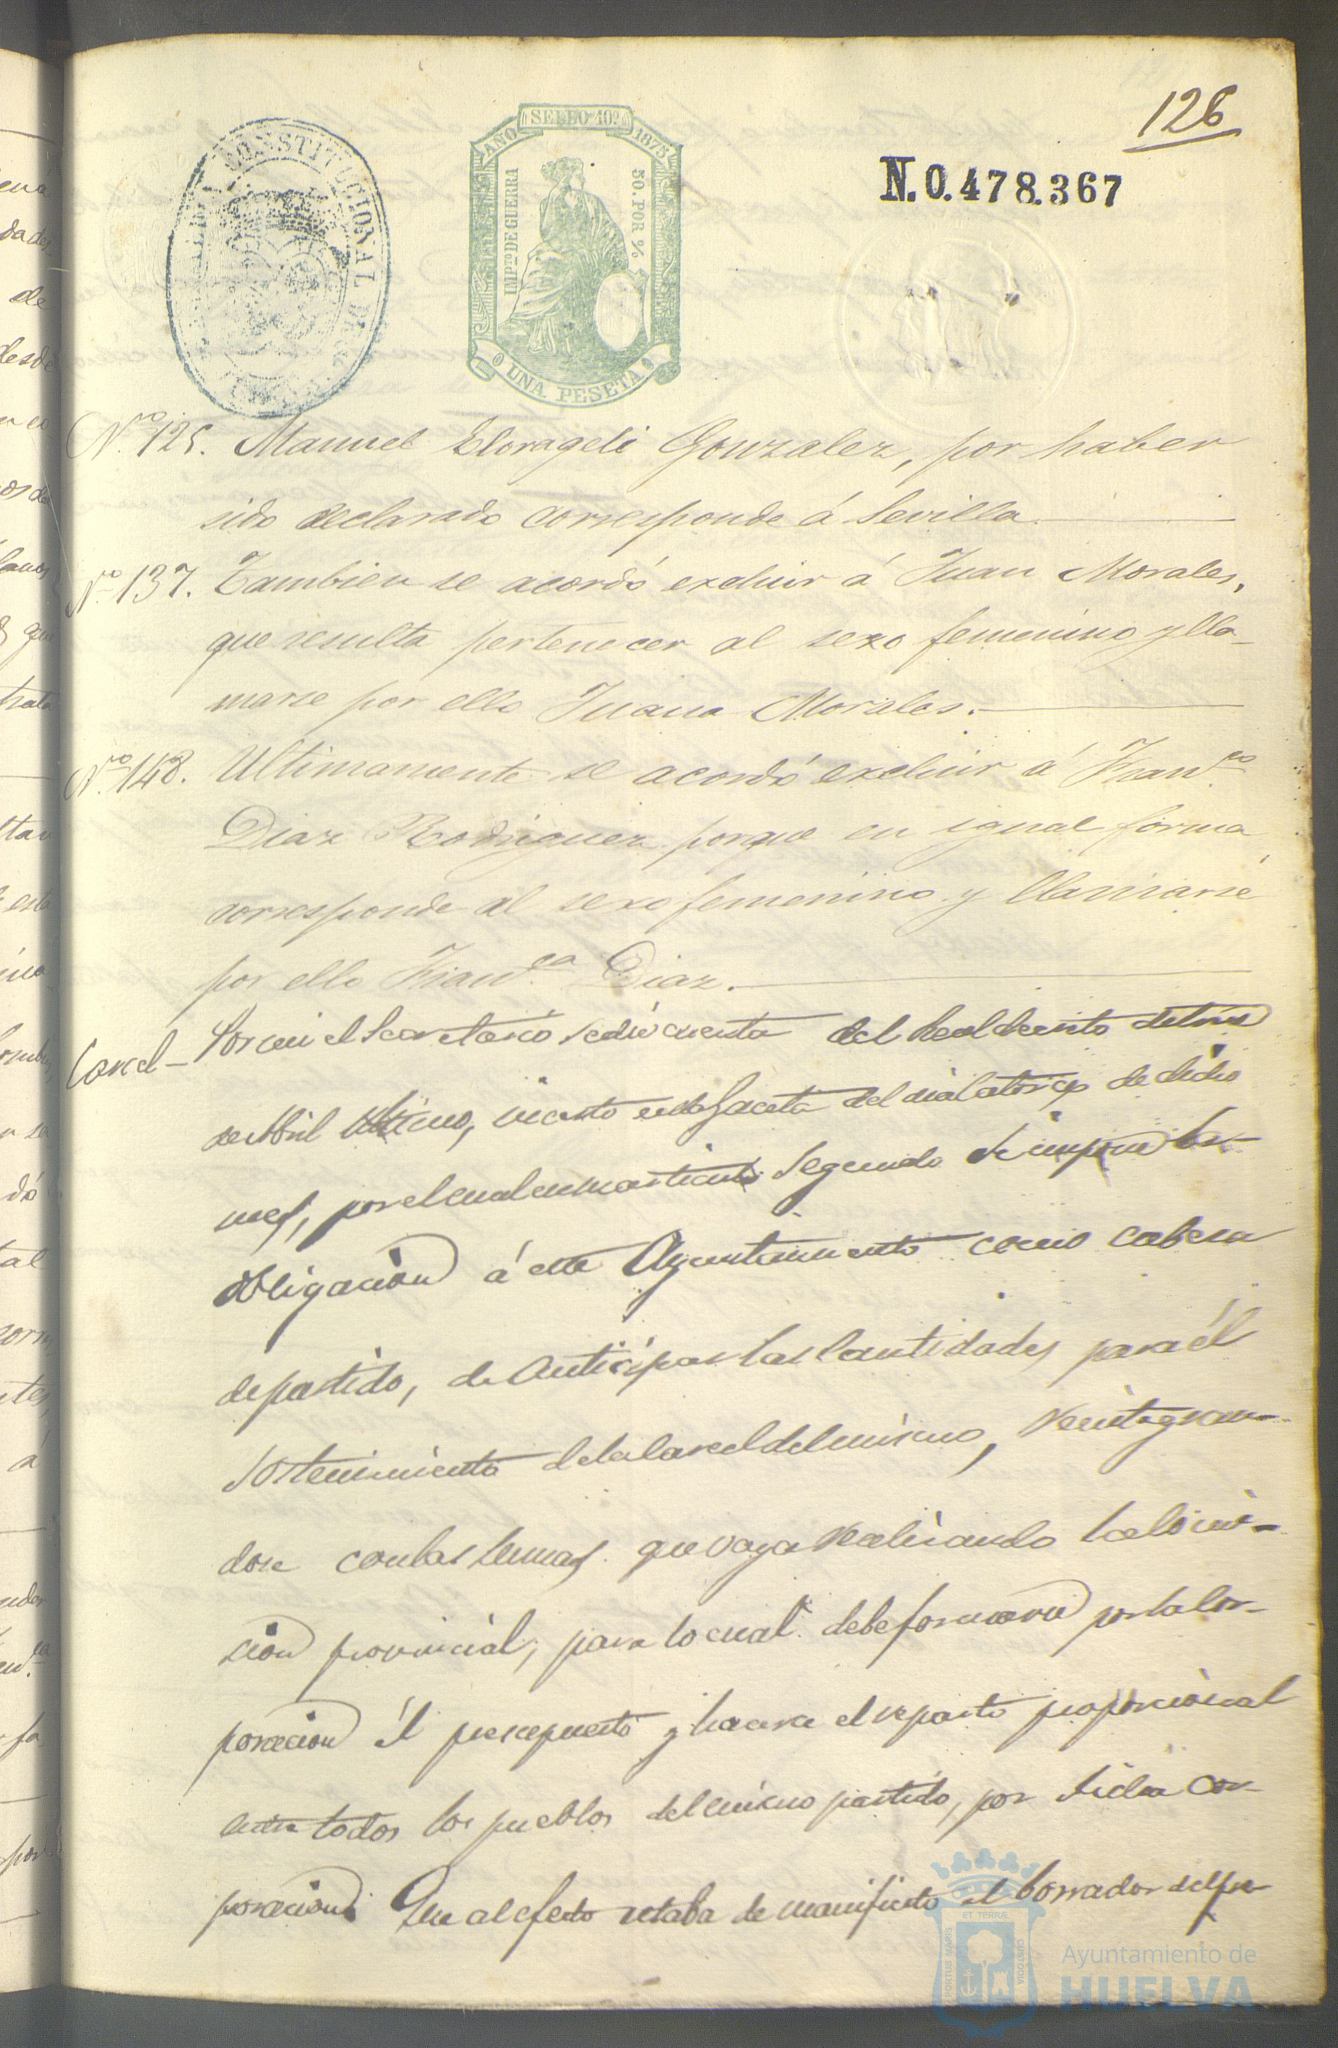 126
N.0.478.367
ALCALDIA CONSTITUCIONAL DE
AÑO SELLO 10º 1875
IMPTO DE GUERRA
50. POR %
UNA PESETA
Nº 125. Manuel Gonzalez, por haber
sido declarado corresponde á Sevilla.
Nº 137. Tambien se acordó excluir á Juan Morales,
que resulta pertenecer al sexo femenino y lla-
marse por ello Juana Morales.
Nº 148. Ultimamente se acordó excluir á Franco
Diaz Rodriguez porque en igual forma
corresponde al sexo femenino y llamarse
por ello Franca Diaz.
Carcel- Por mi el Secretario se dió cuenta del Real decreto de tres
de Abril último, inserto en la Gaceta del dia catorce de dicho
mes, por el cual en su articulo segundo se impone la
obligacion á este Ayuntamiento como cabeza
de partido, de anticipar las cantidades para él
sostenimiento de la Carcel del mismo, reintegran-
dose con las sumas que vaya realizando la Comi-
sion provincial, para lo cual debe formarse por la Cor-
poracion él presupuesto y hacerse el reparto proporcional
entre todos los pueblos del mismo partido, por dicha Cor-
poracion. Que al efecto estaba de manifiesto el borrador del pre
PORTUS MARIS ET TERRÆ CUSTODIA
Ayuntamiento de
HUELVA